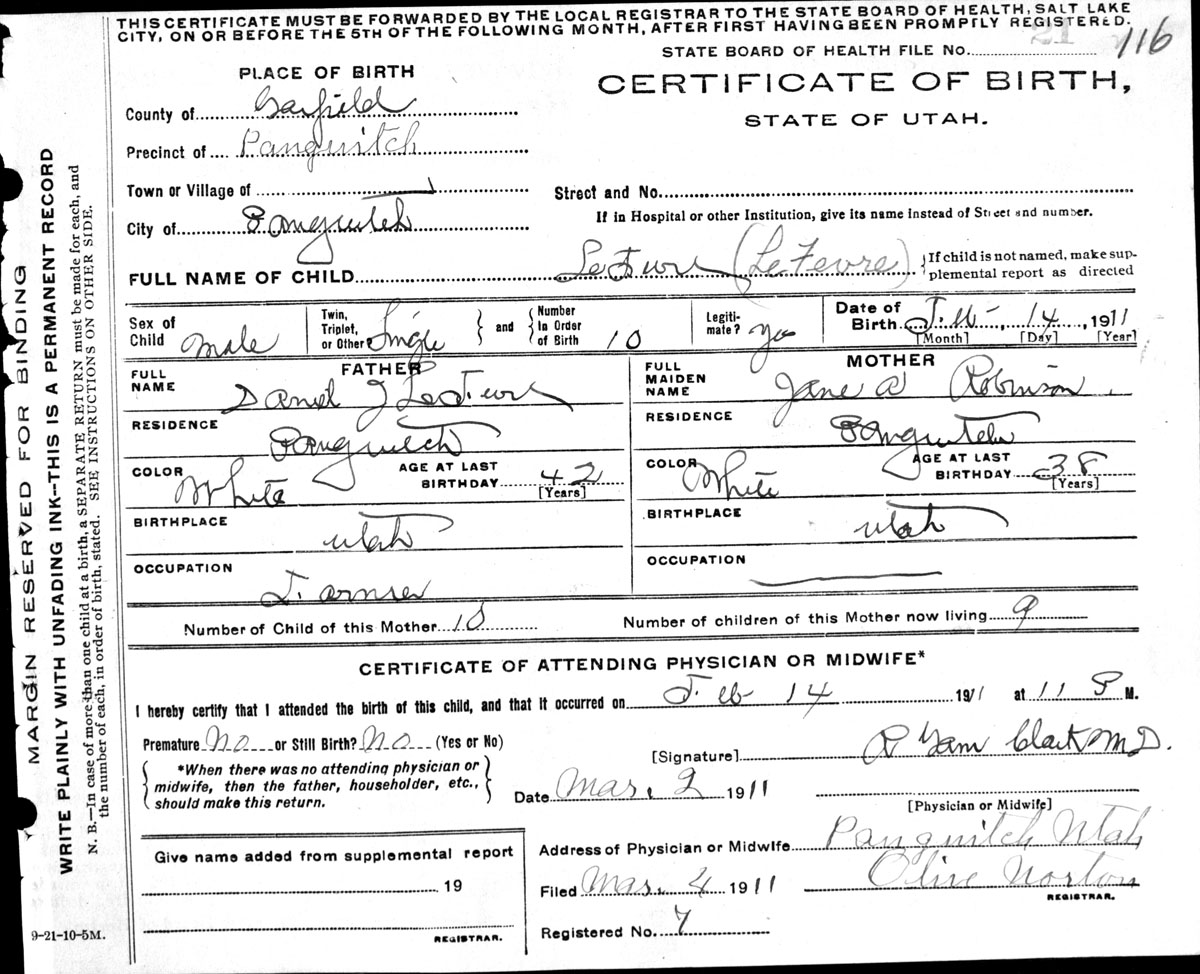 THIS CERTIFICATE MUST BE FORWARDED BY THE LOCAL REGISTRAR TO THE STATE BOARD OF HEALTH, SALT LAKE
CITY, ON OR BEFORE THE 5TH OF THE FOLLOWING MONTH, AFTER FIRST HAVING BEEN PROMPTLY REGISTERED.
21 116
STATE BOARD OF HEALTH FILE No.
PLACE OF BIRTH
CERTIFICATE OF BIRTH,
STATE OF UTAH.
County of Garfield
Precinct of Panguitch
Town or Village of
Street and No.
City of Panguitch
If in Hospital or other Institution, give its name instead of Street and number.
FULL NAME OF CHILD LeFevre (LeFevre) { If child is not named, make sup-
plemental report as directed
Sex of Child Male
Twin, Triplet, or Other Single } and { Number In Order of Birth 10
Legiti-mate? Yes
Date of Birth Feb 14, 1911
[Month] [Day] [Year]
FATHER
FULL NAME Daniel J LeFevre
RESIDENCE Panguitch
COLOR White AGE AT LAST BIRTHDAY 42
[Years]
BIRTHPLACE Utah
OCCUPATION Farmer
MOTHER
FULL MAIDEN NAME Jane A Robinson
RESIDENCE Panguitch
COLOR White AGE AT LAST BIRTHDAY 38
[Years]
BIRTHPLACE Utah
OCCUPATION
Number of Child of this Mother 10 Number of children of this Mother now living 9
CERTIFICATE OF ATTENDING PHYSICIAN OR MIDWIFE*
I hereby certify that I attended the birth of this child, and that it occurred on Feb 14 1911 at 11 P M.
Premature No or Still Birth? No (Yes or No)
[Signature] R Clark M.D.
{ *When there was no attending physician or
midwife, then the father, householder, etc.,
should make this return. }
Date Mar. 2 1911
[Physician or Midwife]
Give name added from supplemental report
19
REGISTRAR.
Address of Physician or Midwife Panguitch Utah
Filed Mar. 4 1911 Olive Norton
REGISTRAR.
Registered No. 7
9-21-10-5M.
MARGIN RESERVED FOR BINDING
WRITE PLAINLY WITH UNFADING INK--THIS IS A PERMANENT RECORD
N. B.—In case of more than one child at a birth, a SEPARATE RETURN must be made for each, and
the number of each, in order of birth, stated. SEE INSTRUCTIONS ON OTHER SIDE.